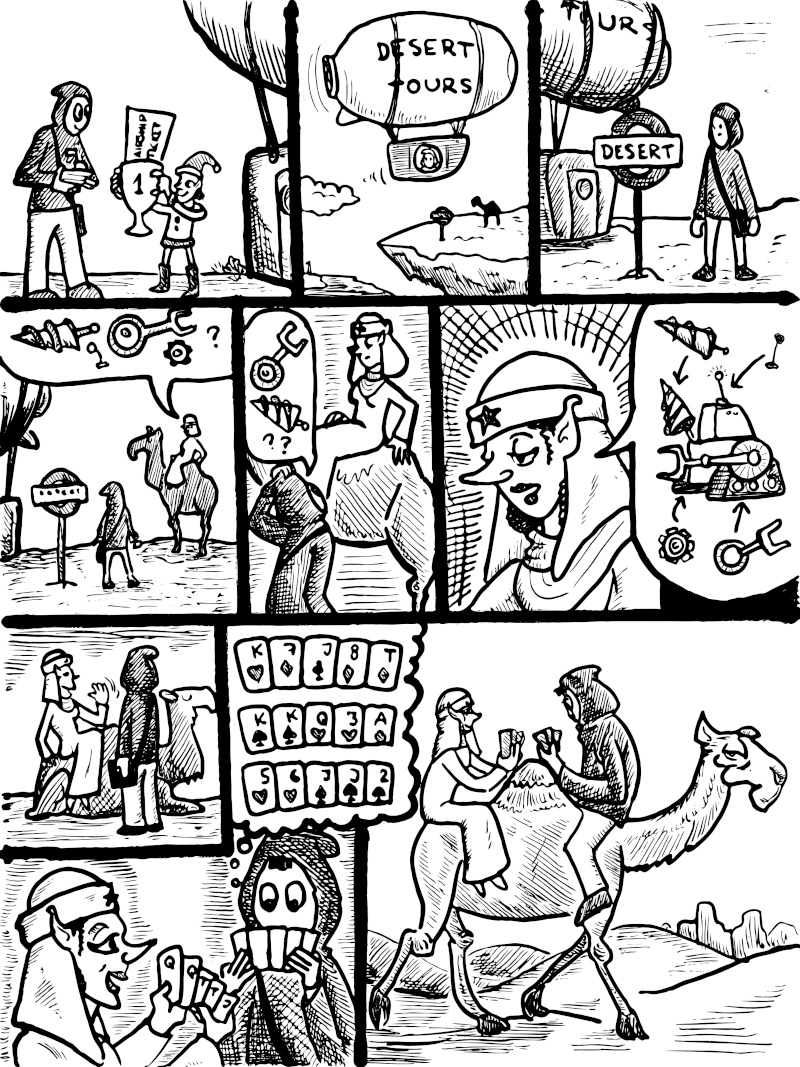 AIRSHIP
TICKET
1
DESERT
TOURS
TOURS
DESERT
?
DESERT
??
K 7 J 8 T
K K Q 3 A
5 6 J J 2
Q Q 7 7 7